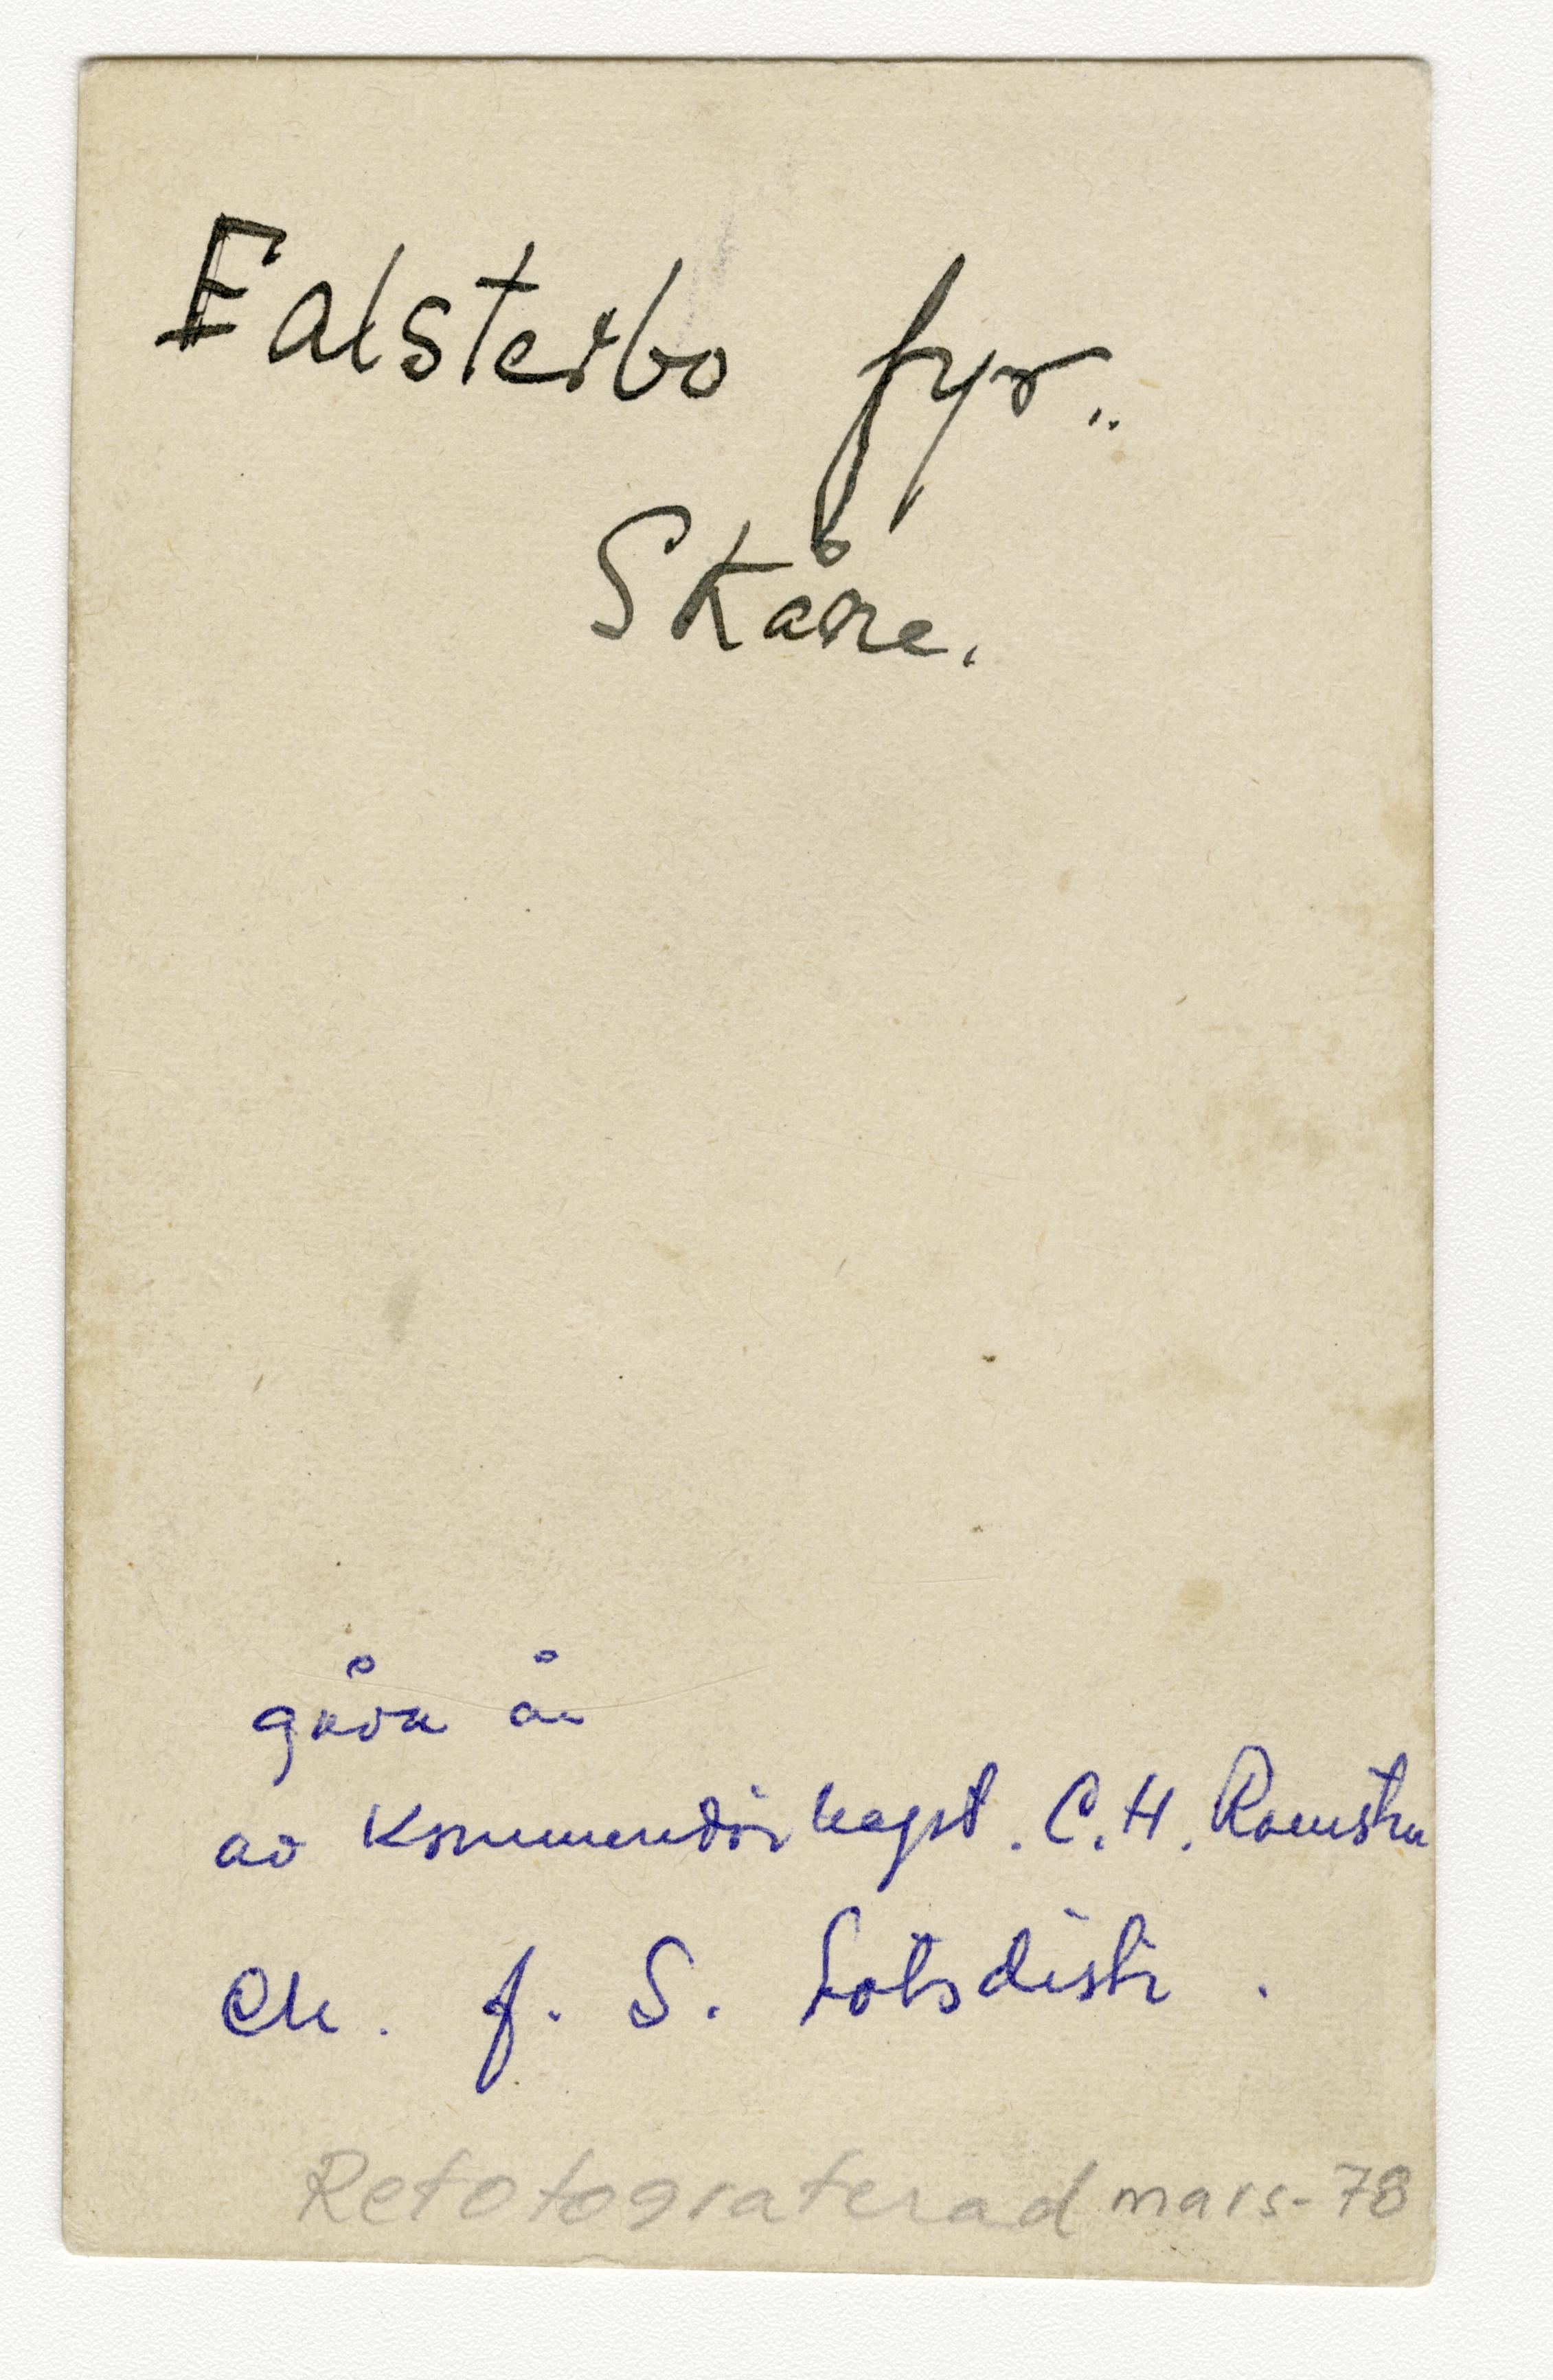 Falsterbo fyr..
Skåne.
gåva
av Kommendörkapt. C. H.
Ch. f. S. Lotsdistr.
Refotograferad mars-78